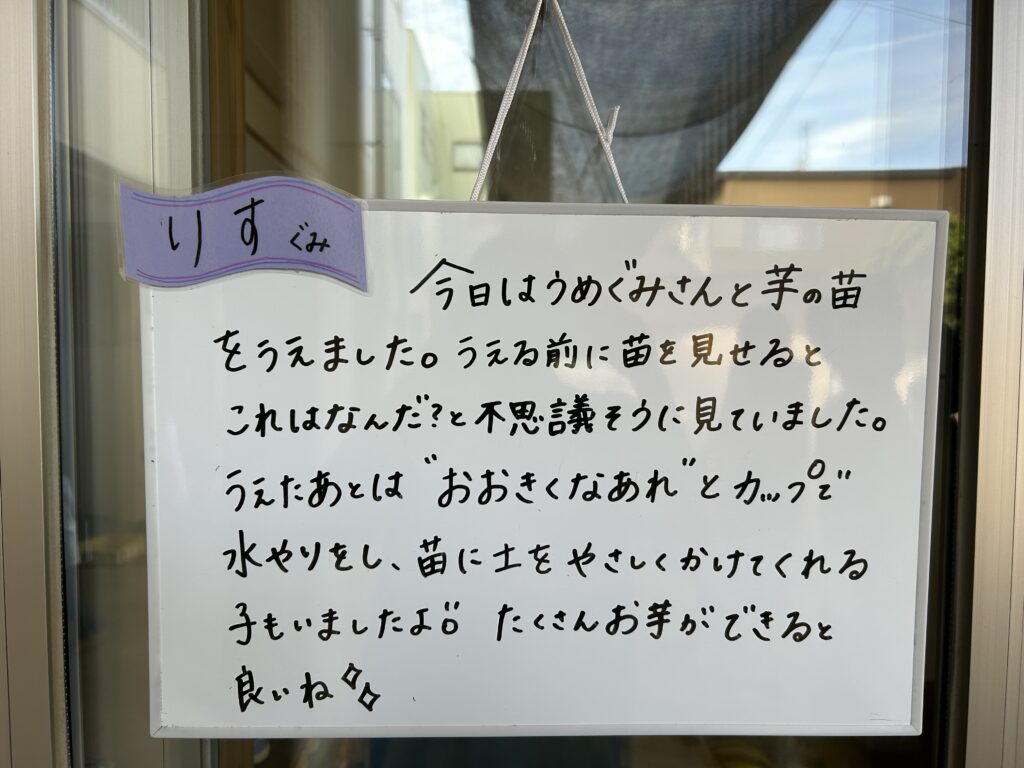 りすぐみ
今日はうめぐみさんと芋の苗
をうえました。うえる前に苗を見せると
これはなんだ?と不思議そうに見ていました。
うえたあとは"おおきくなあれ"とカップで
水やりをし、苗に土をやさしくかけてくれる
子もいましたよ!! たくさんお芋ができると
良いね